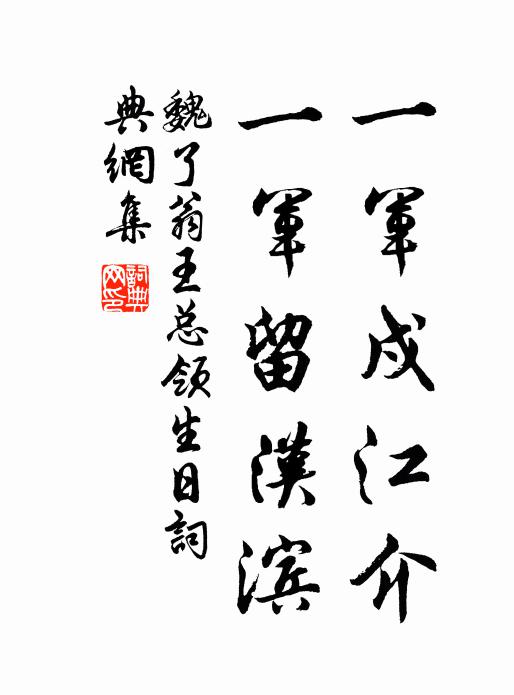 一軍戍江介
一軍留漢滨
魏了翁王总领生日詞
典網集
詞典网印